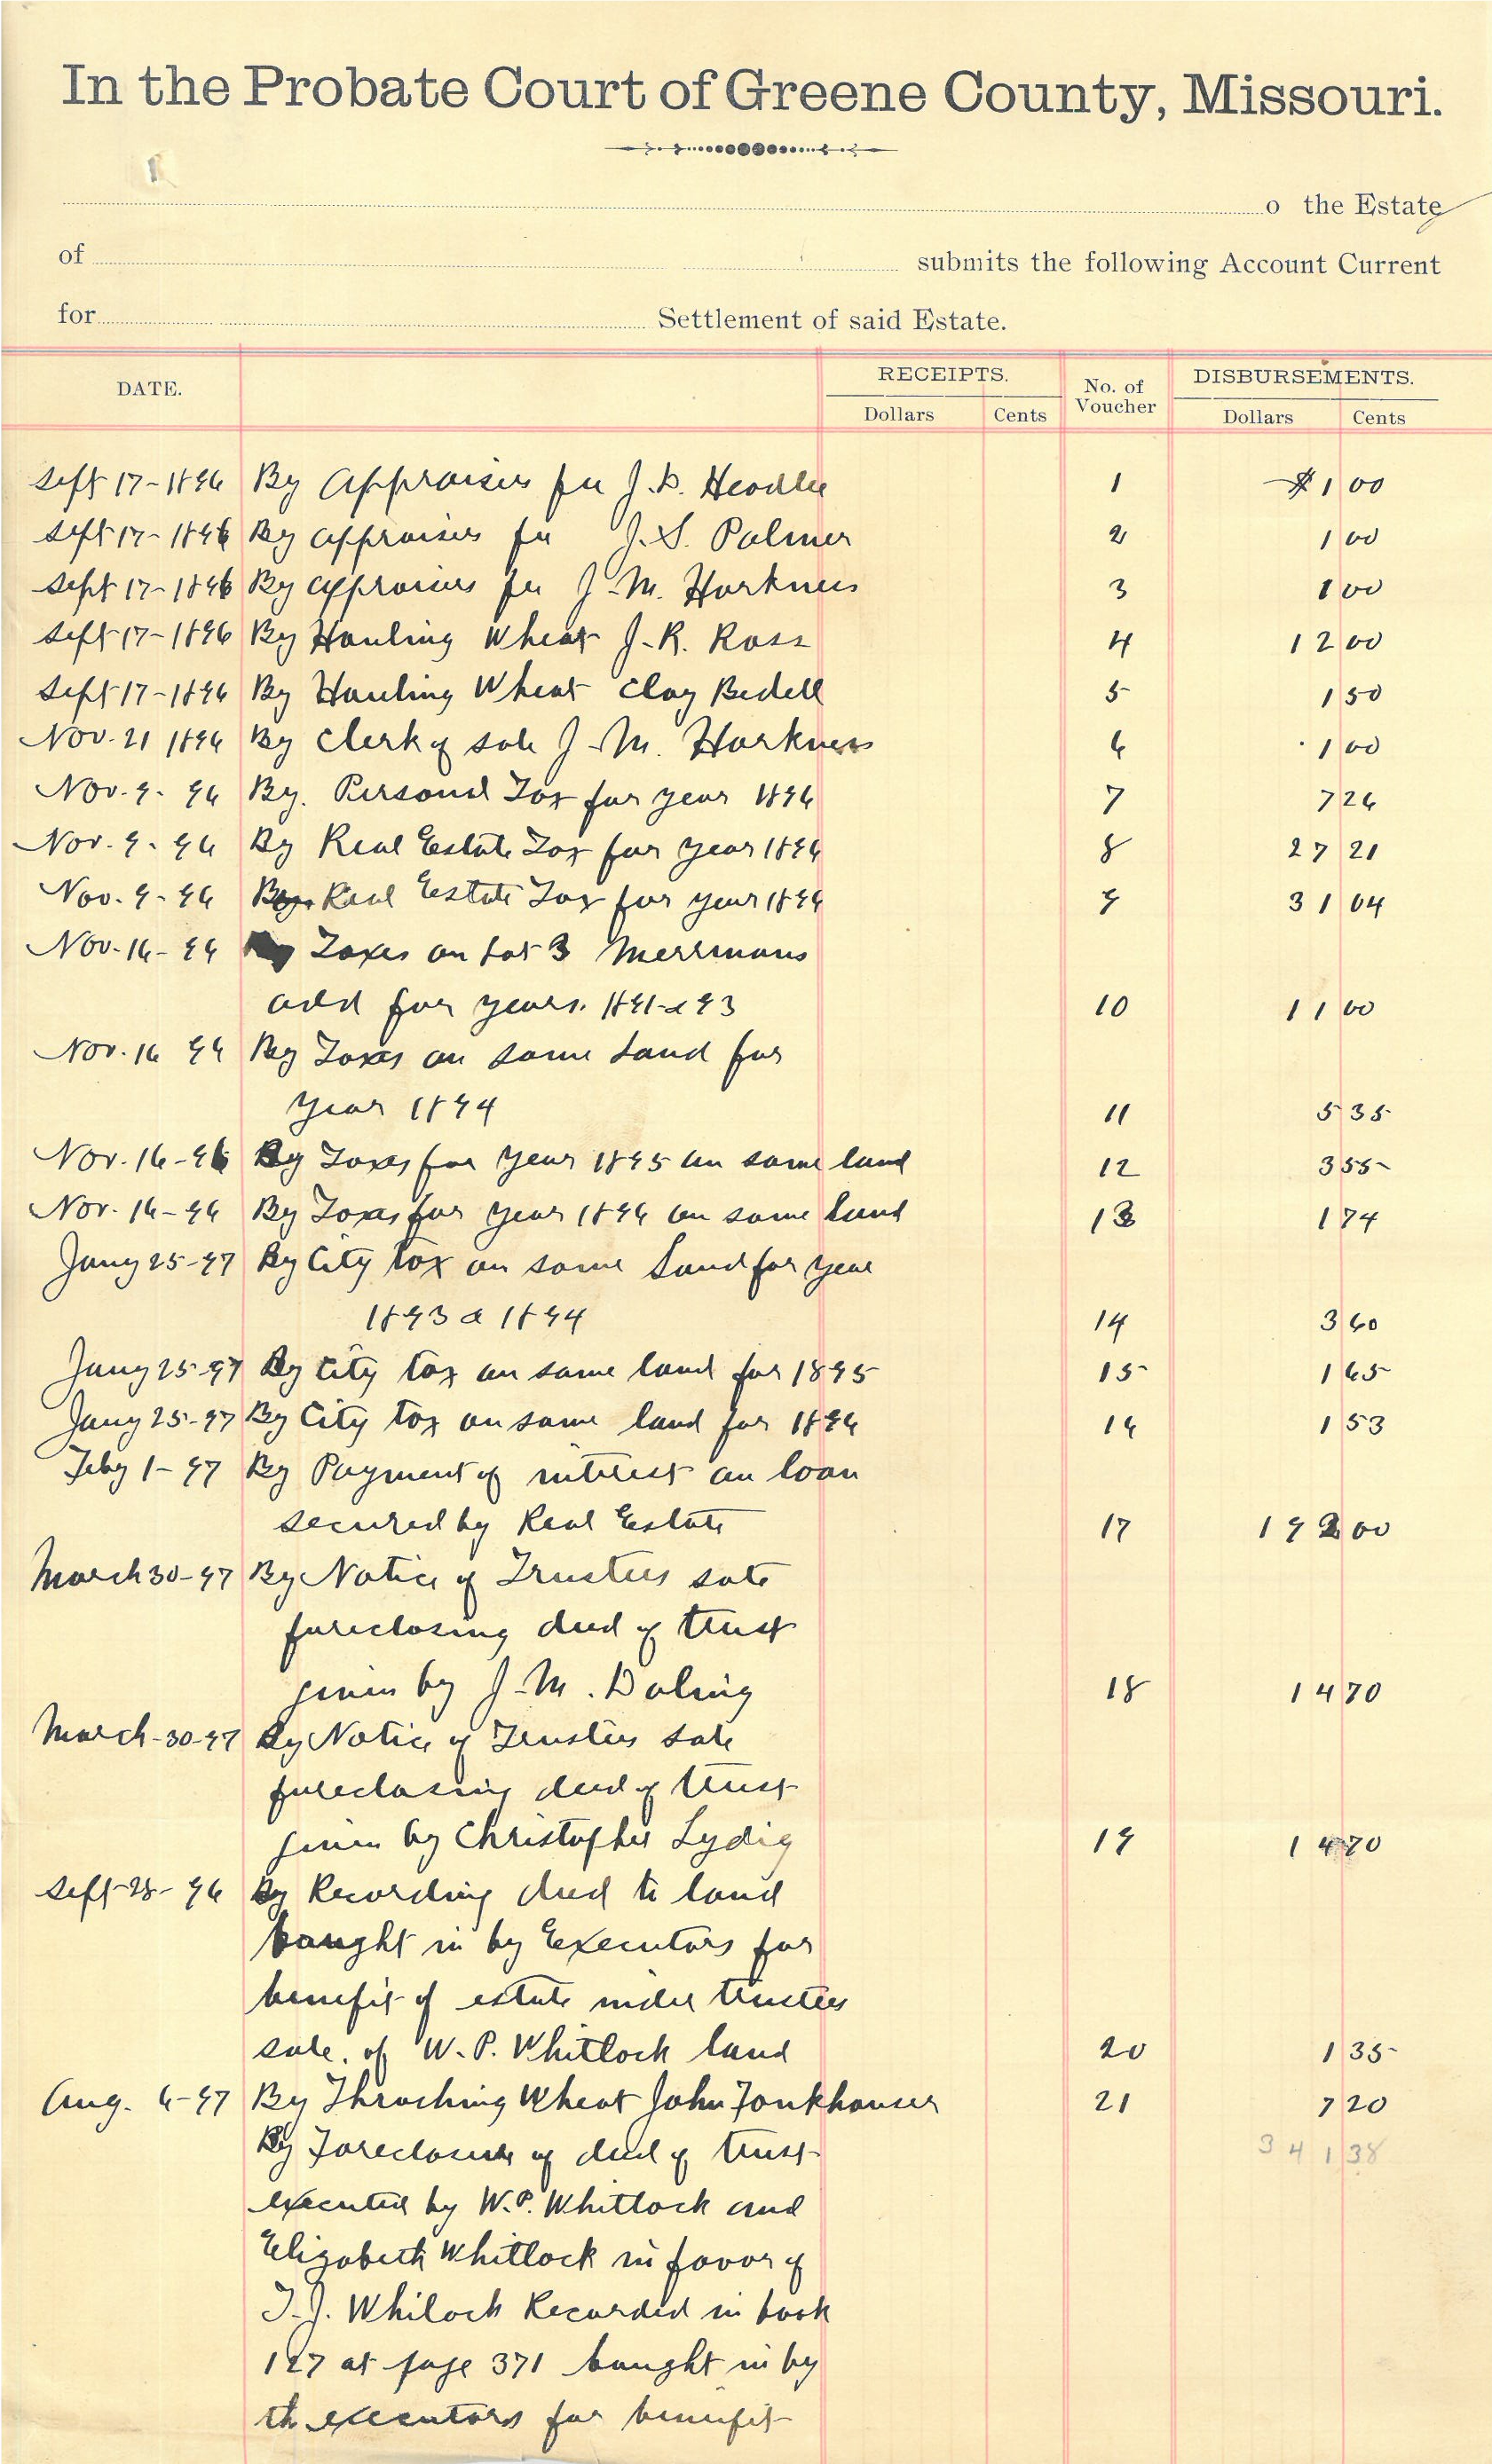 In the Probate Court of Greene County, Missouri.
o the Estate
of submits the following Account Current
for Settlement of said Estate.
DATE. RECEIPTS. No. of Voucher DISBURSEMENTS.
Dollars Cents Dollars Cents
Sept 17-1896 By Appraisers fee J.D. Headlee 1 $1 00
Sept 17-1896 By appraisers fee J.S. Palmer 2 1 00
Sept 17-1896 By appraisers fee J.M. Harkness 3 1 00
Sept 17-1896 By Hauling Wheat J.R. Ross 4 12 00
Sept 17-1896 By Hauling Wheat Clay Bedell 5 1 50
Nov. 21 1896 By Clerk of sale J.M. Harkness 6 1 00
Nov. 9. 96 By. Personal Tax for year 1896 7 7 26
Nov. 9. 96 By Real Estate Tax for year 1896 8 27 21
Nov. 9-96 By Real Estate Tax for year 1896 9 31 04
Nov. 16-96 By Taxes on Lot 3 Merrimans
add for years. 1891-2 93 10 11 00
Nov. 16 96 By Taxes on same Land for
year 1894 11 5 35
Nov. 16-96 By Taxes for year 1895 on same land 12 3 55
Nov. 16-96 By Taxes for year 1896 on same land 13 1 74
Jany 25-97 By City tax on same Land for year
1893 & 1894 14 3 60
Jany 25-97 By City tax on same land for 1895 15 1 65
Jany 25-97 By City tax on same land for 1896 16 1 53
Feby 1-97 By Payment of interest on loan
secured by Real Estate 17 192 00
March 30-97 By Notice of Trustees sale
foreclosing deed of trust
given by J.M. Doling 18 14 70
March-30-97 By Notice of Trustees sale
foreclosing deed of trust
given by Christopher Lydig 19 14 70
Sept-28-96 By Recording deed to land
bought in by Executors for
benefit of estate under trustees
sale. of W.P. Whitlock land 20 1 35
Aug. 6-97 By Thrashing Wheat John Fonkhouser 21 7 20
By Foreclosure of deed of trust 341 38
executed by W.P. Whitlock and
Elizabeth Whitlock in favor of
T.J. Whilock Recorded in book
127 at page 371 bought in by
th executors for benefit